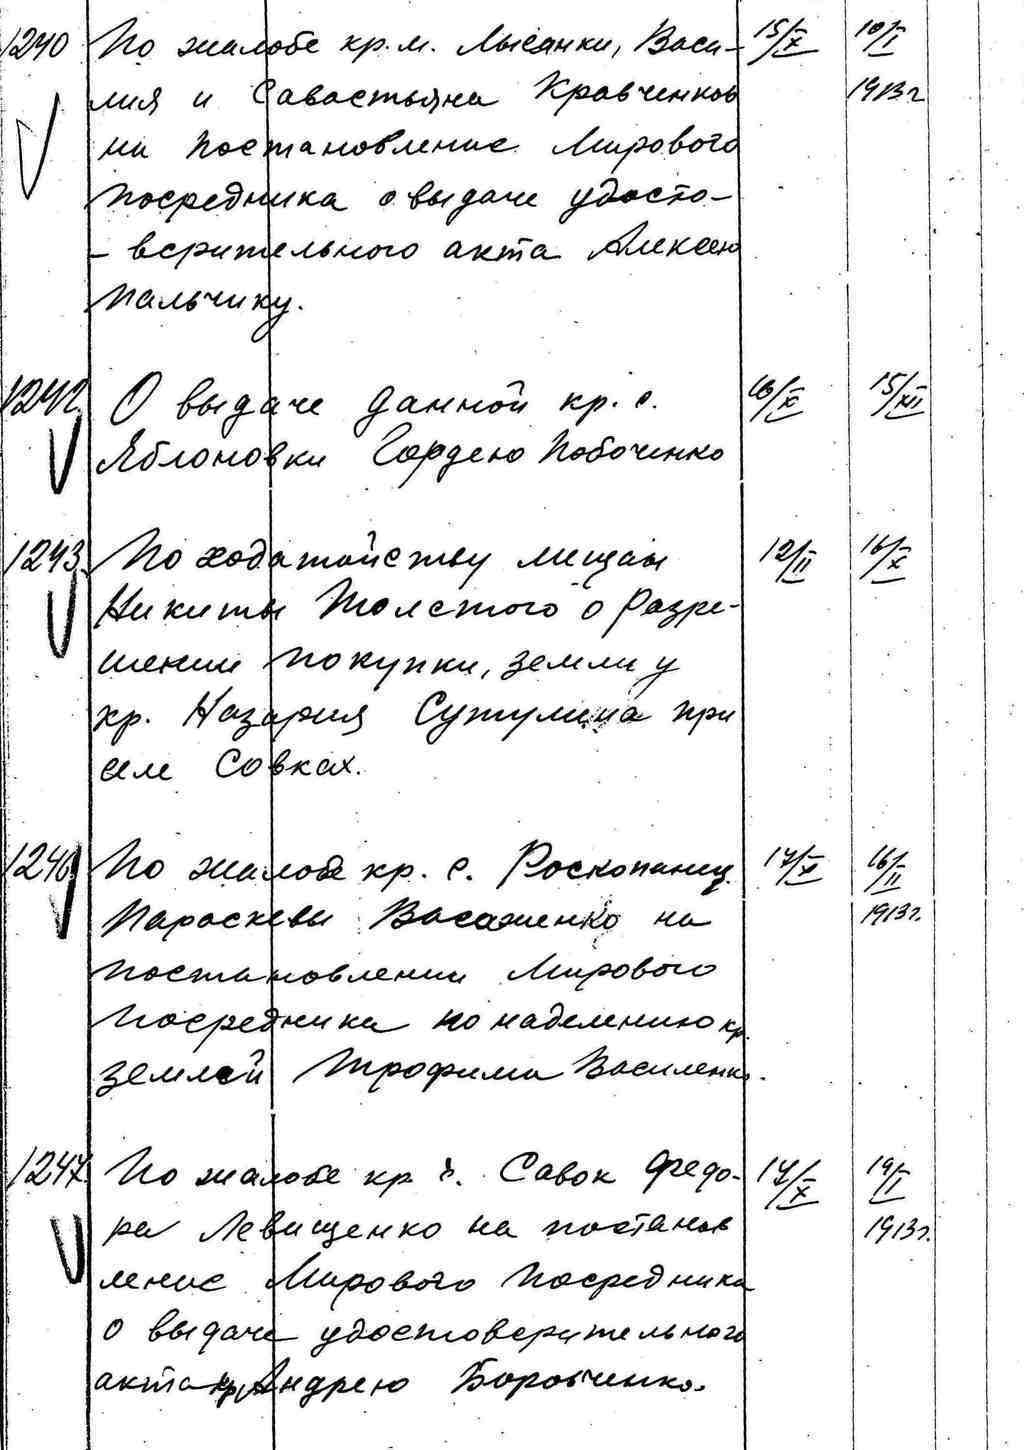 1240 По жалобе кр. м. Лысанки, Васи- 15/X 10/I
лия и Савастьяна Кравченков 1913г
на постановление Мирового
посредника о выдаче удосто-
- верительного акта Алексею
Пальчику.
1242 О выдаче данной кр. с. 16/X 15/XII
Яблоновки Гордею Побоченко
1243 По ходатайству мещан 12/II 16/X
Никиты Толстого о разре-
шении покупки, земли у
кр. Назария Сутулина при
селе Совках.
1246 По жалобе кр. с. Роскопанец 17/X 16/II
Параскевы Васаженко на 1913г.
постановлении Мирового
посредника по наделению кр.
землей Трофима Василенко.
1247. По жалобе кр с. Савок Федо- 17/X 19/I
ра Левищенко на постанов 1913г.
ление Мирового Посредника
о выдаче удостоверительного
акта кр. Андрею Боровченко.